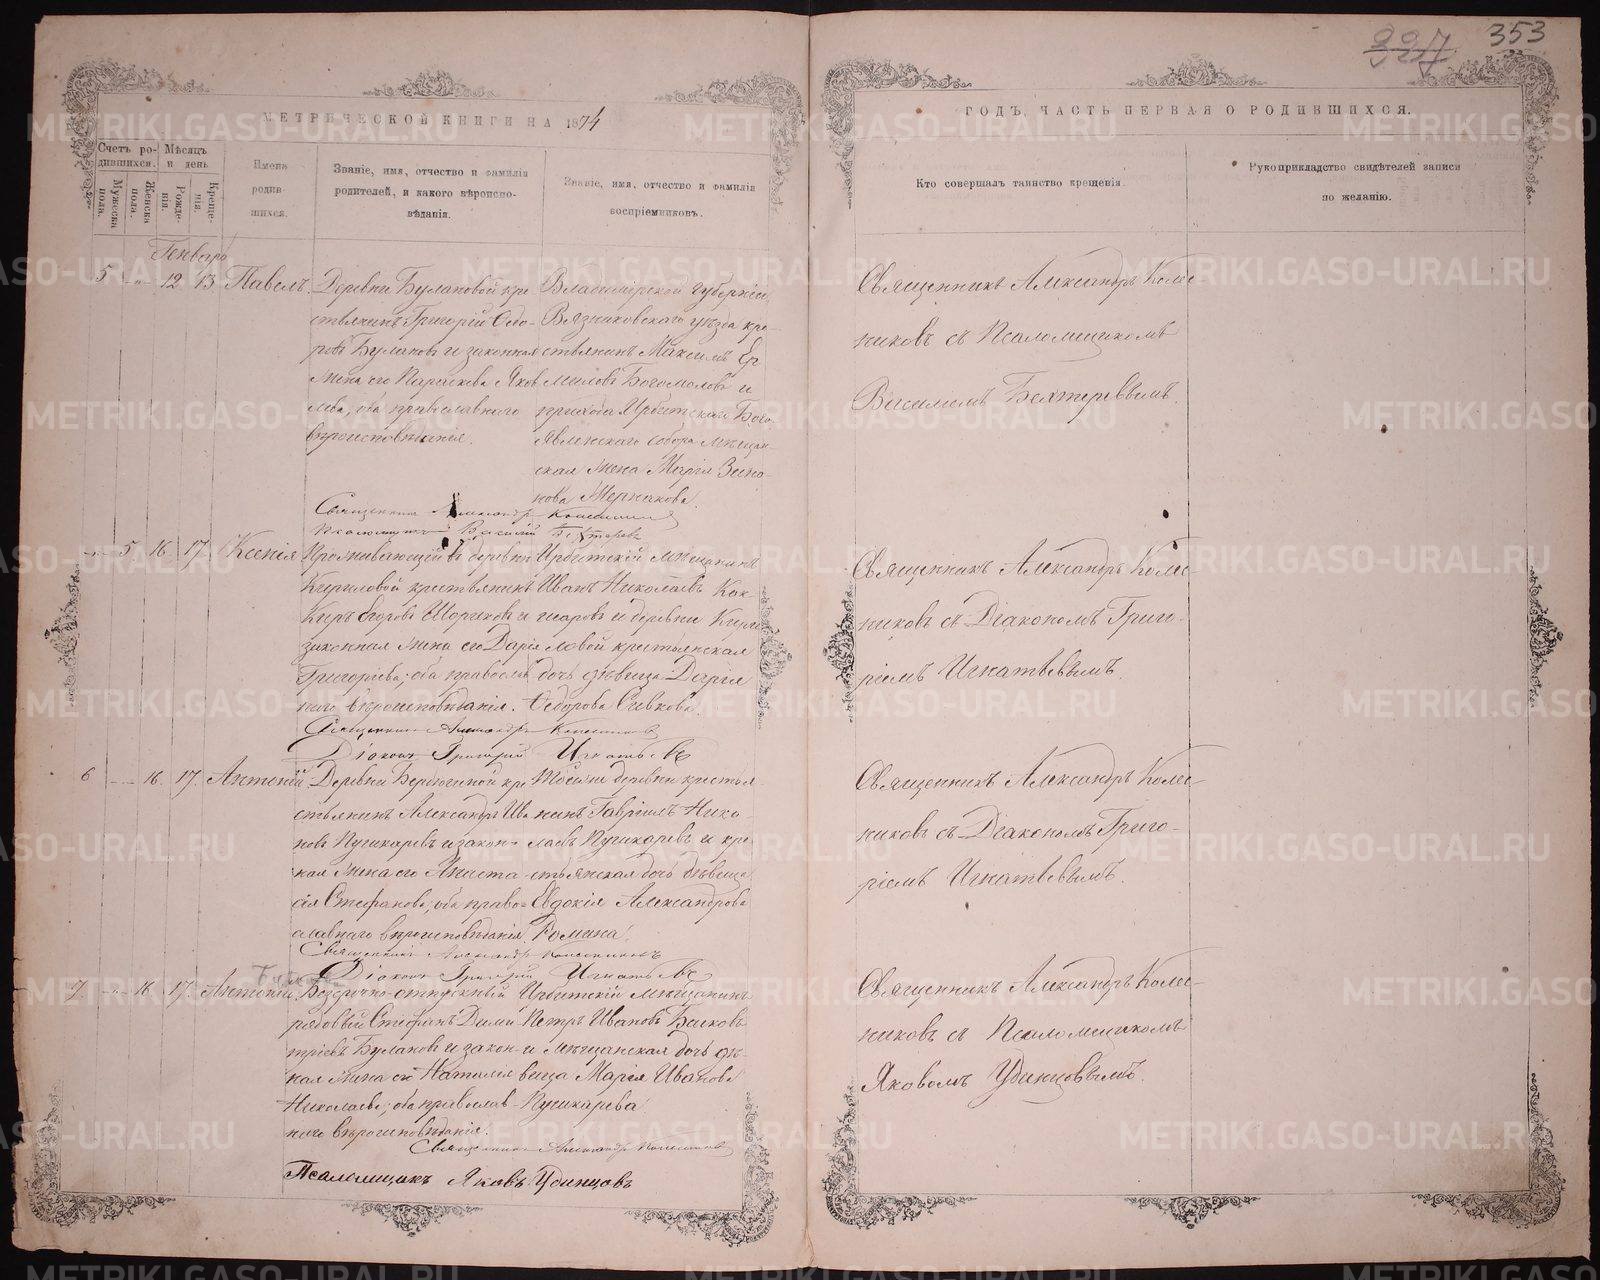 337 353
МЕТРИЧЕСКОЙ КНИГИ НА 1874
ГОДЪ, ЧАСТЬ ПЕРВАЯ О РОДИВШИХСЯ.
Счетъ ро-
дившихся.
Мѣсяцъ
и день
Мужеска
пола.
Женска
пола.
Рожде-
нія.
Креще-
нія.
Имена
родив-
шихся.
Званіе, имя, отчество и фамилія
родителей, и какого вѣроиспо-
вѣданія.
Званіе, имя, отчество и фамилія
воспріемниковъ.
Кто совершалъ таинство крещенія.
Рукоприкладство свидѣтелей записи
по желанію.
Генварь
5 12 13 Павелъ.
Деревни Булановой кре
стьянинъ Григорій Ѳедо-
ровъ Булановъ и законная
жена его Параскева Яков
лева, оба православнаго
вѣроисповѣданія.
Владимірской губерніи
Вязниковскаго уѣзда кре-
стьянинъ Максимъ Ер
миловъ Богомоловъ и
прихода Ирбитскаго Бого
явленскаго собора мѣщан-
ская жена Марія Зино-
нова Мерзлякова
Священникъ Александръ Колесниковъ
Псаломщикъ Василій Бехтеревъ
Священникъ Александръ Колес
никовъ съ Псаломщикомъ
Василіемъ Бехтеревымъ.
5 16 17 Ксенія
Проживающій въ деревни
Кириловой крестьянинъ
Киръ Егоровъ Шориковъ и
законная жена его Дарія
Григорьева, оба православ
наго вѣроисповѣданія.
Ирбитскій мѣщанинъ
Иванъ Николаевъ Кок
шаровъ и деревни Кири
ловой крестьянская
дочь дѣвица Дарія
Ѳедорова Сивкова.
Священникъ Александръ Колесниковъ
Діаконъ Григорій Игнатьевъ
Священникъ Александръ Колес-
никовъ съ Діакономъ Григо-
ріемъ Игнатьевымъ.
6 16 17 Антоній
Деревни Бердюгиной кре
стьянинъ Александръ Ива
новъ Пушкаревъ и закон-
ная жена его Анаста-
сія Стефанова, оба право-
славнаго вѣроисповѣданія.
Тойже деревни крестья-
нинъ Гавріилъ Нико-
лаевъ Пушкаревъ и кре-
стьянская дочь дѣвица
Евдокія Александрова
Ѳомина.
Священникъ Александръ Колесниковъ
Діаконъ Григорій Игнатьевъ
Священникъ Александръ Колес-
никовъ съ Діакономъ Григо-
ріемъ Игнатьевымъ.
7 16 17 Антоній
Безсрочно-отпускный
рядовый Стефанъ Дими
тріевъ Булановъ и закон-
ная жена его Наталія
Николаева, оба православ-
наго вѣроисповѣданія.
Ирбитскій мѣщанинъ
Петръ Ивановъ Быковъ
и мѣщанская дочь дѣ-
вица Марія Иванова
Пушкарева.
Священникъ Александръ Колесниковъ
Псаломщикъ Яковъ Удинцовъ
Священникъ Александръ Колес-
никовъ съ Псаломщикомъ
Яковомъ Удинцовымъ.
METRIKI.GASO-URAL.RU